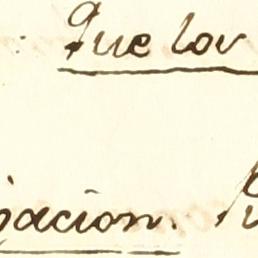 Que lov
gacion.